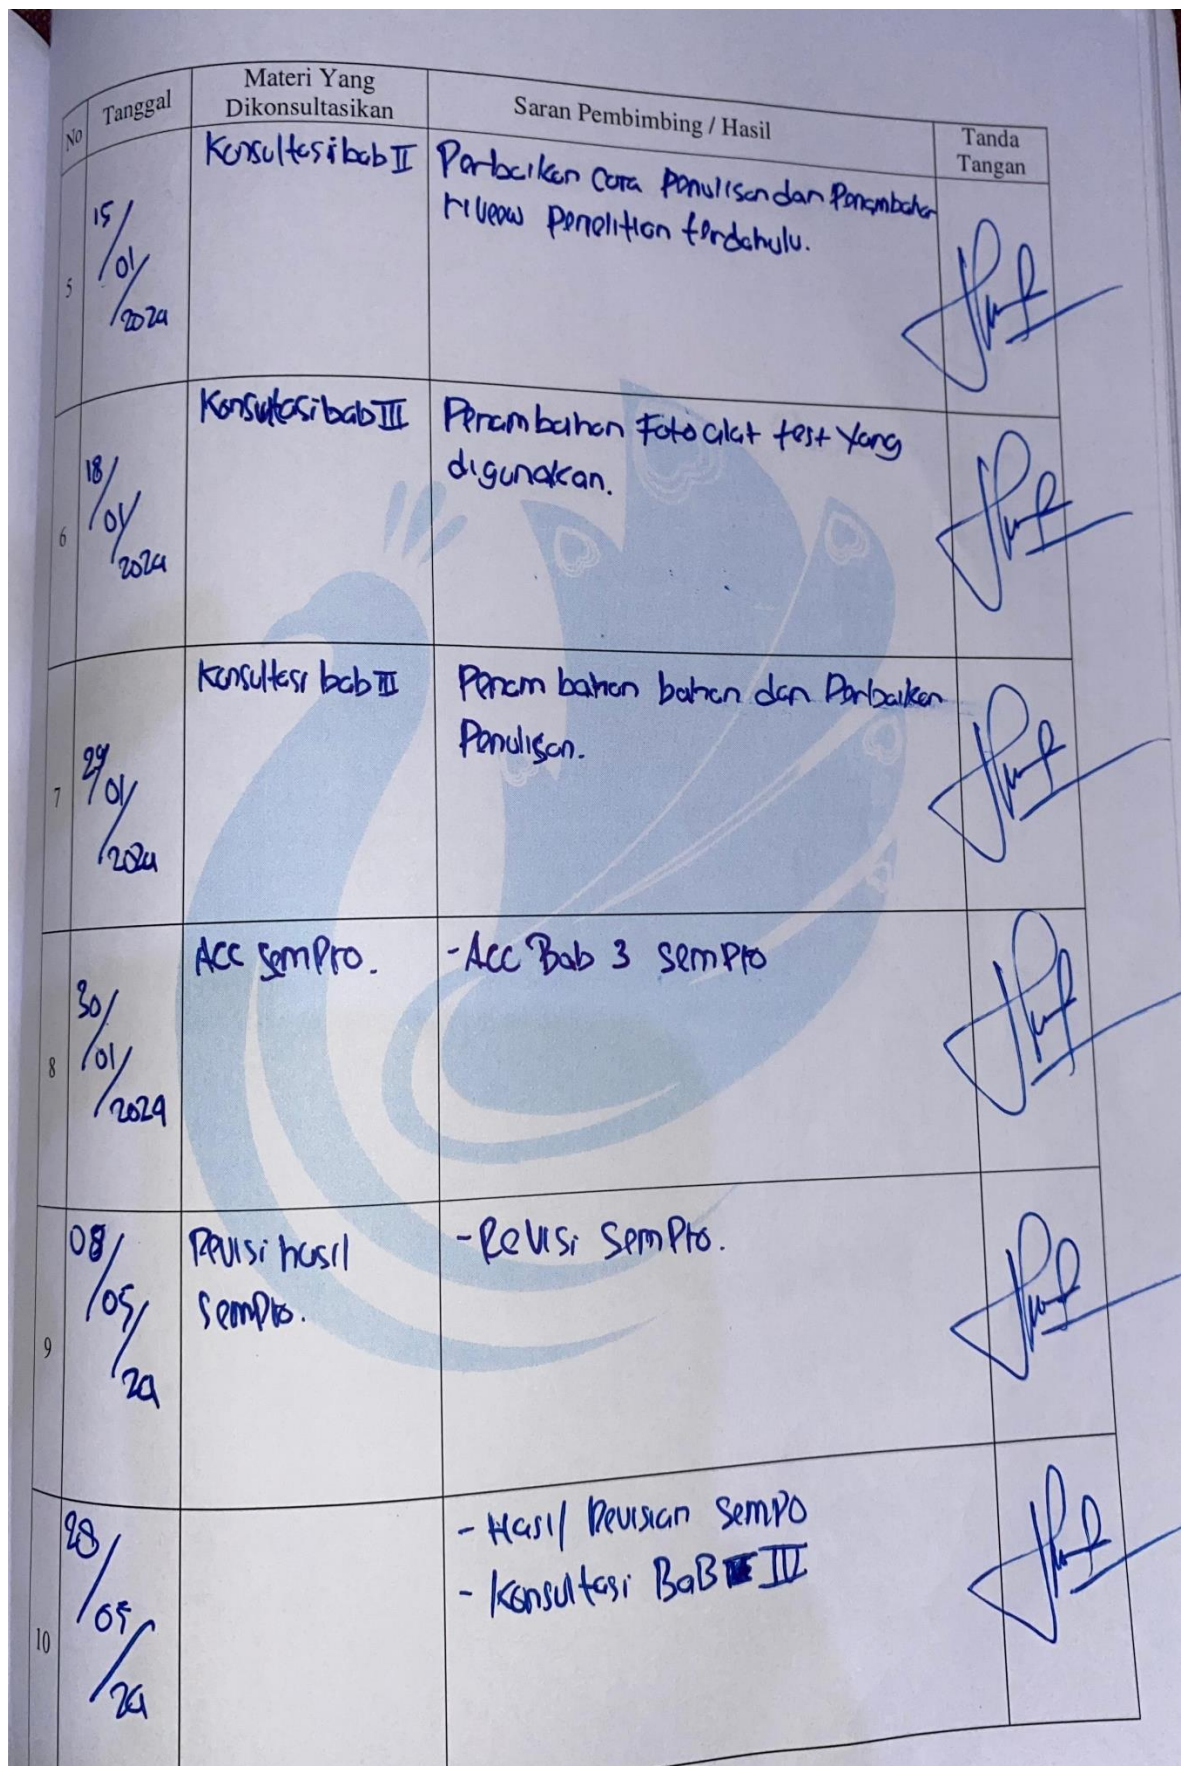 No
Tanggal
Materi Yang
Dikonsultasikan
Saran Pembimbing / Hasil
Tanda
Tangan
5
15/
01/
2024
Konsultasi bab II
Perbaikan Cara Penulisan dan Penambahan
riveow Penelitian terdahulu.
6
18/
01/
2024
Konsultasi bab III
Penambahan Foto alat test Yang
digunakan.
7
29/
01/
2024
Konsultasi bab III
Penambahan bahan dan Perbaikan
Penulisan.
8
30/
01/
2024
ACC SemPro.
-Acc Bab 3 SemPro
9
08/
05/
24
Revisi hasil
SemPro.
-Revisi SemPro.
10
28/
05/
24
- Hasil Revisian SemPo
- Konsultasi BaB IV